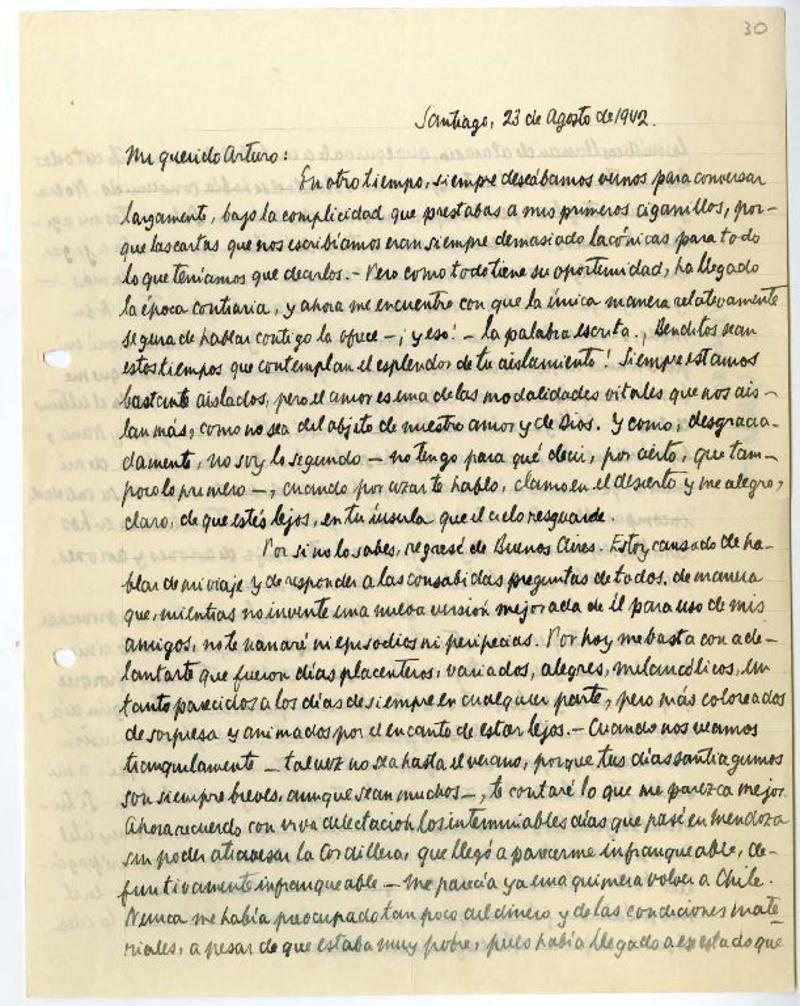 30
Santiago, 23 de Agosto de 1942.
Mi querido Arturo:
En otro tiempo, siempre deseábamos vernos para conversar
largamente, bajo la complicidad que prestabas a mis primeros cigarrillos, por-
que las cartas que nos escribíamos eran siempre demasiado lacónicas para todo
lo que teníamos que decirlos.- Pero como todo tiene su oportunidad, ha llegado
la época contraria, y ahora me encuentro con que la única manera relativamente
segura de hablar contigo la ofrece -¡y eso!- la palabra escrita. ¡Benditos sean
estos tiempos que contemplan el esplendor de tu aislamiento! Siempre estamos
bastante aislados, pero el amor es una de las modalidades vitales que nos ais-
lan más, como no sea del objeto de nuestro amor y de Dios. Y como, desgracia-
damente, no soy lo segundo - no tengo para qué decir, por cierto, que tam-
poco lo primero -, cuando por azar te hablo, clamo en el desierto y me alegro,
claro, de que estés lejos, en tu ínsula que el cielo resguarde.
Por si no lo sabes, regresé de Buenos Aires. Estoy cansado de ha-
blar de mi viaje y de responder a las consabidas preguntas de todos, de manera
que, mientras no invente una nueva versión mejorada de él para uso de mis
amigos, no te narraré ni episodios ni peripecias. Por hoy me basta con ade-
lantarte que fueron días placenteros, variados, alegres, melancólicos, un
tanto parecidos a los días de siempre en cualquier parte, pero más coloreados
de sorpresa y animados por el encanto de estar lejos.- Cuando nos veamos
tranquilamente - tal vez no sea hasta el verano, porque tus días santiaguinos
son siempre breves, aunque sean muchos -, te contaré lo que me parezca mejor.
Ahora recuerdo con viva delectación los interminables días que pasé en Mendoza
sin poder atravesar la Cordillera, que llegó a parecerme infranqueable, de-
finitivamente infranqueable - Me parecía ya una quimera volver a Chile.
Nunca me había preocupado tan poco del dinero y de las condiciones mate-
riales, a pesar de que estaba muy pobre, pues había llegado a ese estado que